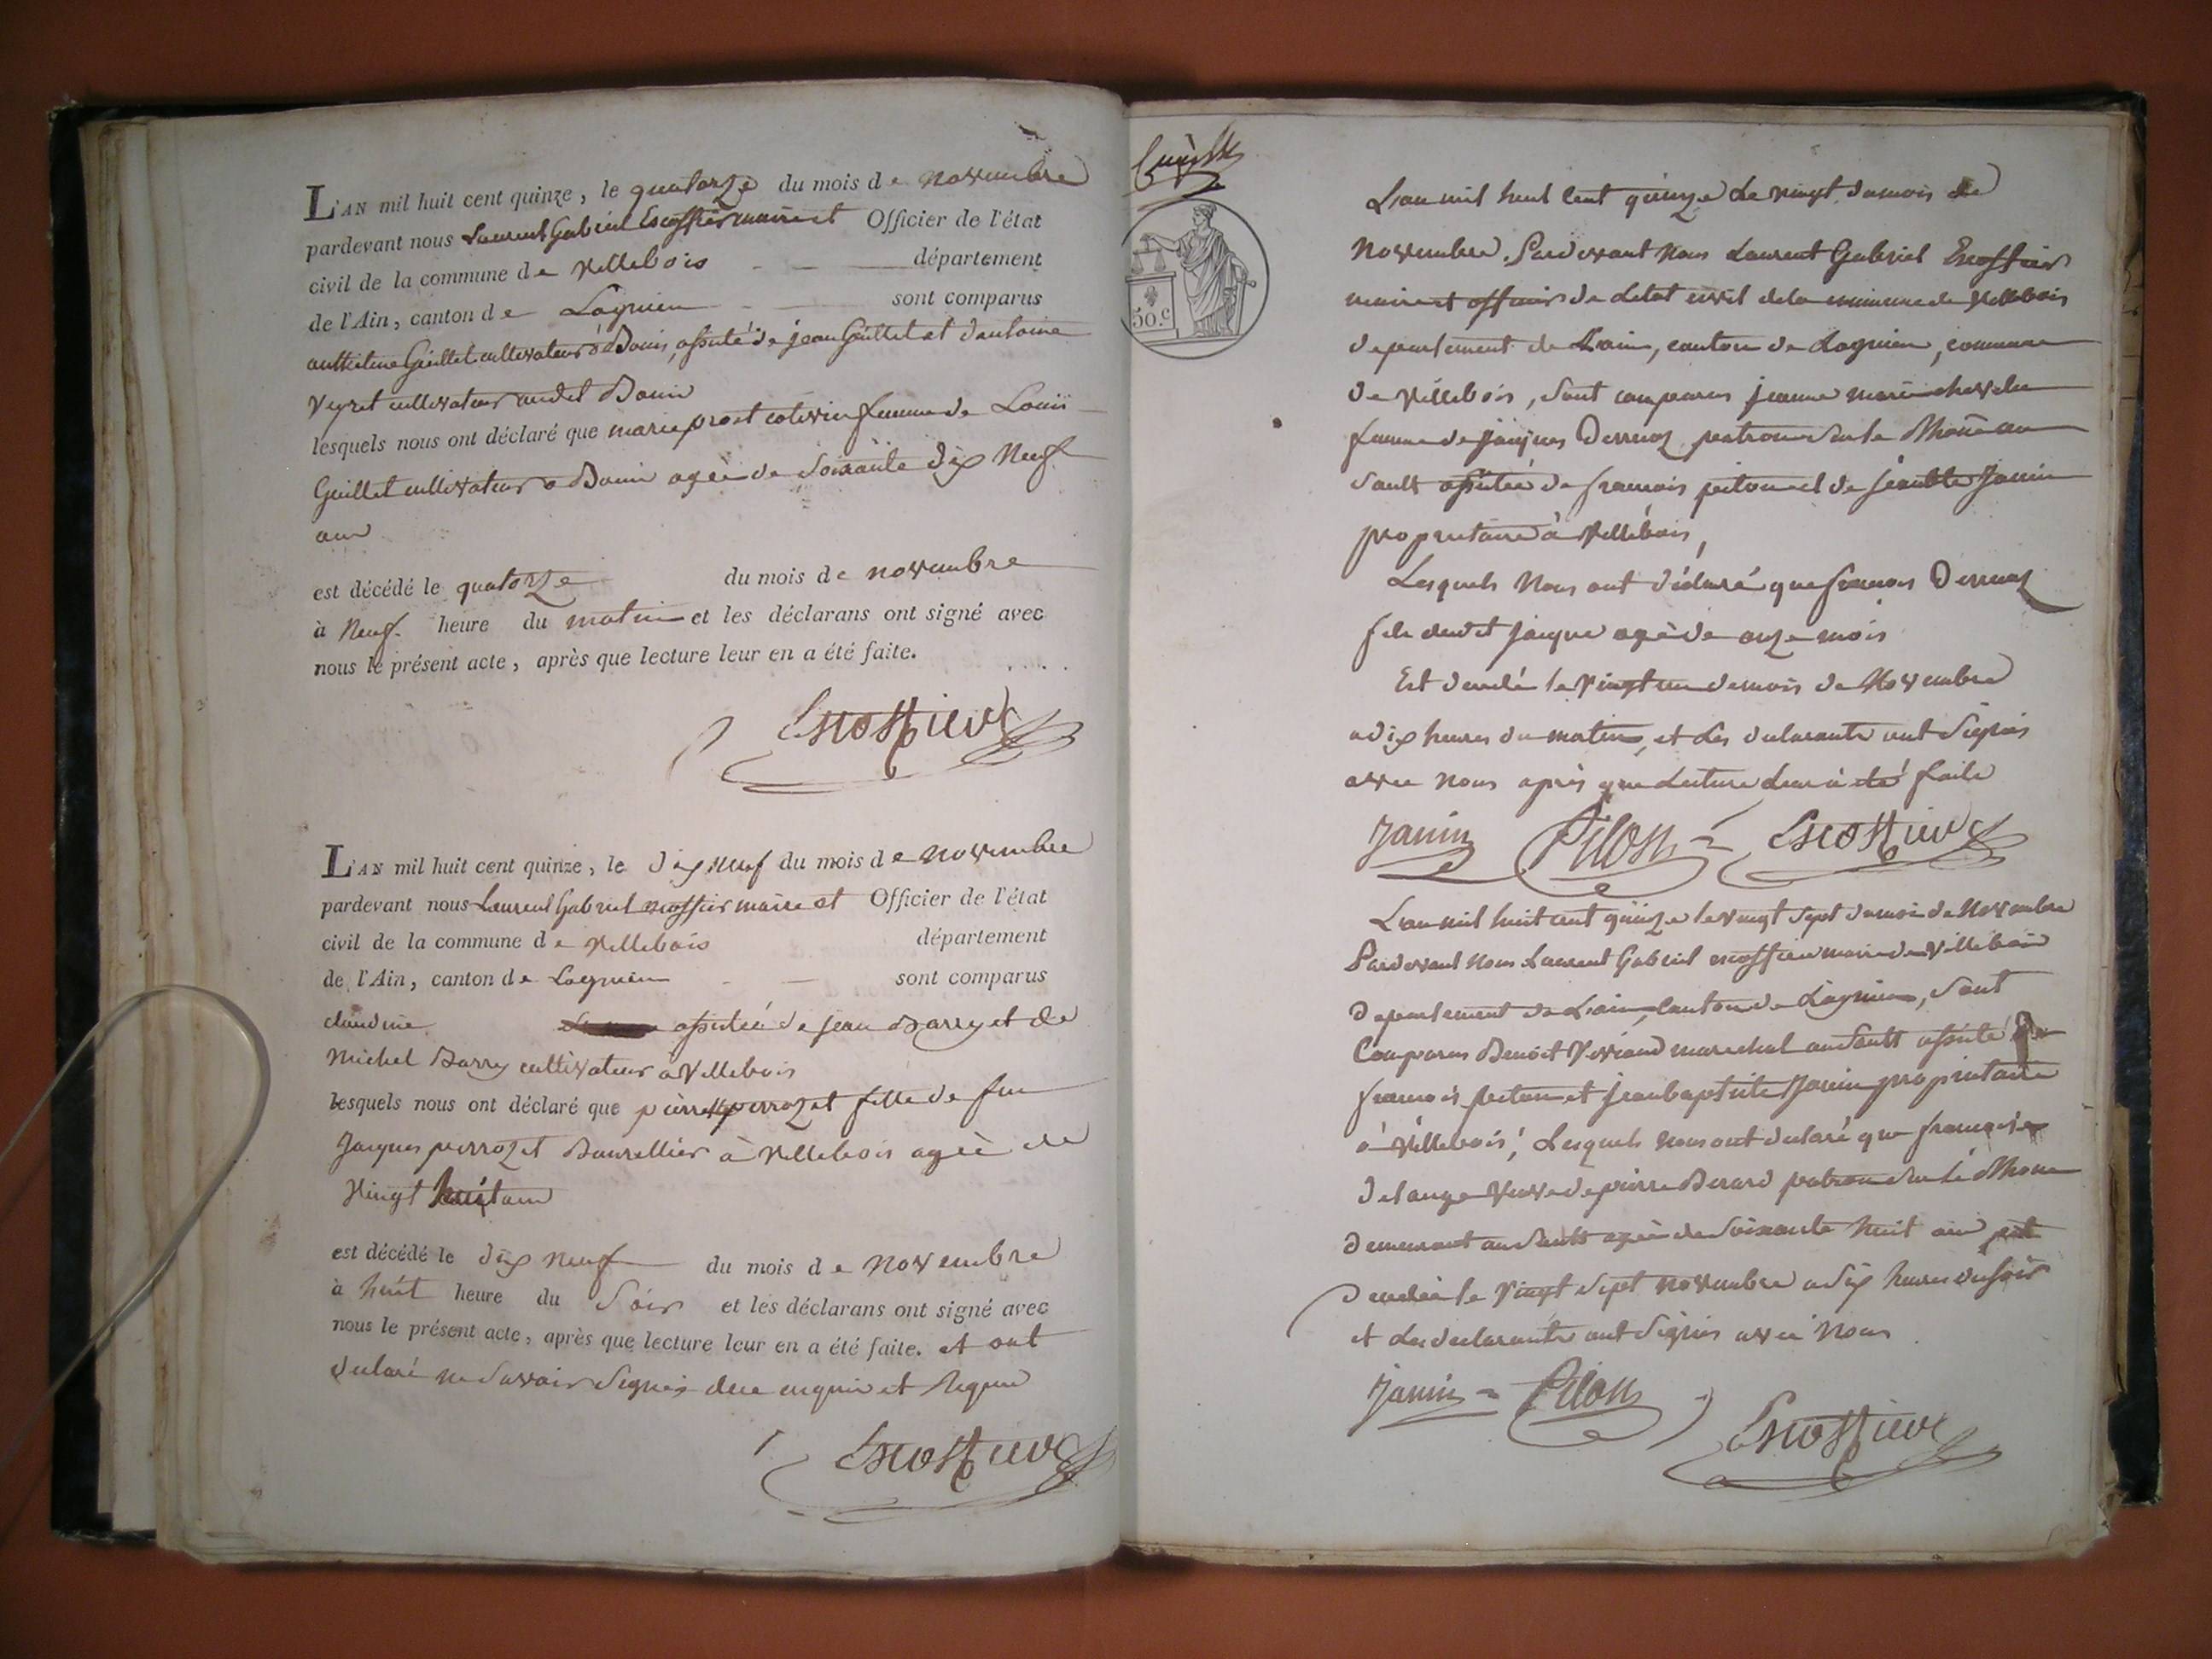 L'AN mil huit cent quinze, le quatorze du mois de novembre
pardevant nous Laurent Gabriel Escoffier maire et Officier de l'état
civil de la commune de Villebois département
de l'Ain, canton de Lagnieu sont comparus
Guillet cultivateur à Bouis, assisté de jean Guillet et d'antoine
Veyret cultivateur audit Bouis
lesquels nous ont déclaré que marie prost cotivin femme de Louis
Guillet cultivateur a Bouis agée de Soixante dix Neuf
ans
est décédé le quatorze du mois de novembre
à Neuf heure du matin et les déclarans ont signé avec
nous le présent acte, après que lecture leur en a été faite.
Escoffier
L'AN mil huit cent quinze, le dix neuf du mois de novembre
pardevant nous Laurent Gabriel escoffier maire et Officier de l'état
civil de la commune de Villebois département
de l'Ain, canton de Lagnieu sont comparus
claudine assistée de jean Barry et de
Michel Barry cultivateur à Villebois
lesquels nous ont déclaré que pierrette perrozet fille de feu
Jacques perrozet Bourellier à Villebois agée de
Vingt huit ans
est décédé le dix neuf du mois de Novembre
à huit heure du Soir et les déclarans ont signé avec
nous le présent acte, après que lecture leur en a été faite. et ont
déclaré ne Savoir Signer de ce enquis et requis
Escoffier
50.c
L'an mil huit cent quinze Le vingt du mois de
Novembre. Pardevant Nous Laurent Gabriel Escoffier
maire et officier de Letat civil de la commune de Villebois
departement de Lain, canton de Lagnieu, commune
de Villebois, Sont comparus jeanne marie chevelu
femme de Jacques Derruaz patron Sur le Rhône au
Sault assistée de francois pitou et de jean bte Janin
propriétaire à Villebois,
Lesquels Nous ont déclaré que francois Derruaz
fils dudit jacque agé de onze mois
Est decedé le Vingt un du mois de Novembre
a dix heures du matin, et Les declarants ont Signés
avec nous après que Lecture Leur à été faite
Janin Pitou Escoffier
L'an mil huit cent quinze le vingt Sept du mois de Novembre
Pardevant Nous Laurent Gabriel escoffier maire de Villebois
departement de Lain, canton de Lagnieu, Sont
Comparus Benoit Viviand marechal au Sault assisté de
francois pitou et jean baptiste Janin propriétaire
à Villebois, Lesquels nous ont declaré que francoise
Delange Veuve de pierre Berard patron Sur Le Rhone
demeurant au Sault agée de Soixante huit ans est
decedée le Vingt Sept novembre a dix heures du Soir
et Les declarants ont Signés avec Nous
Janin Pitou
Escoffier